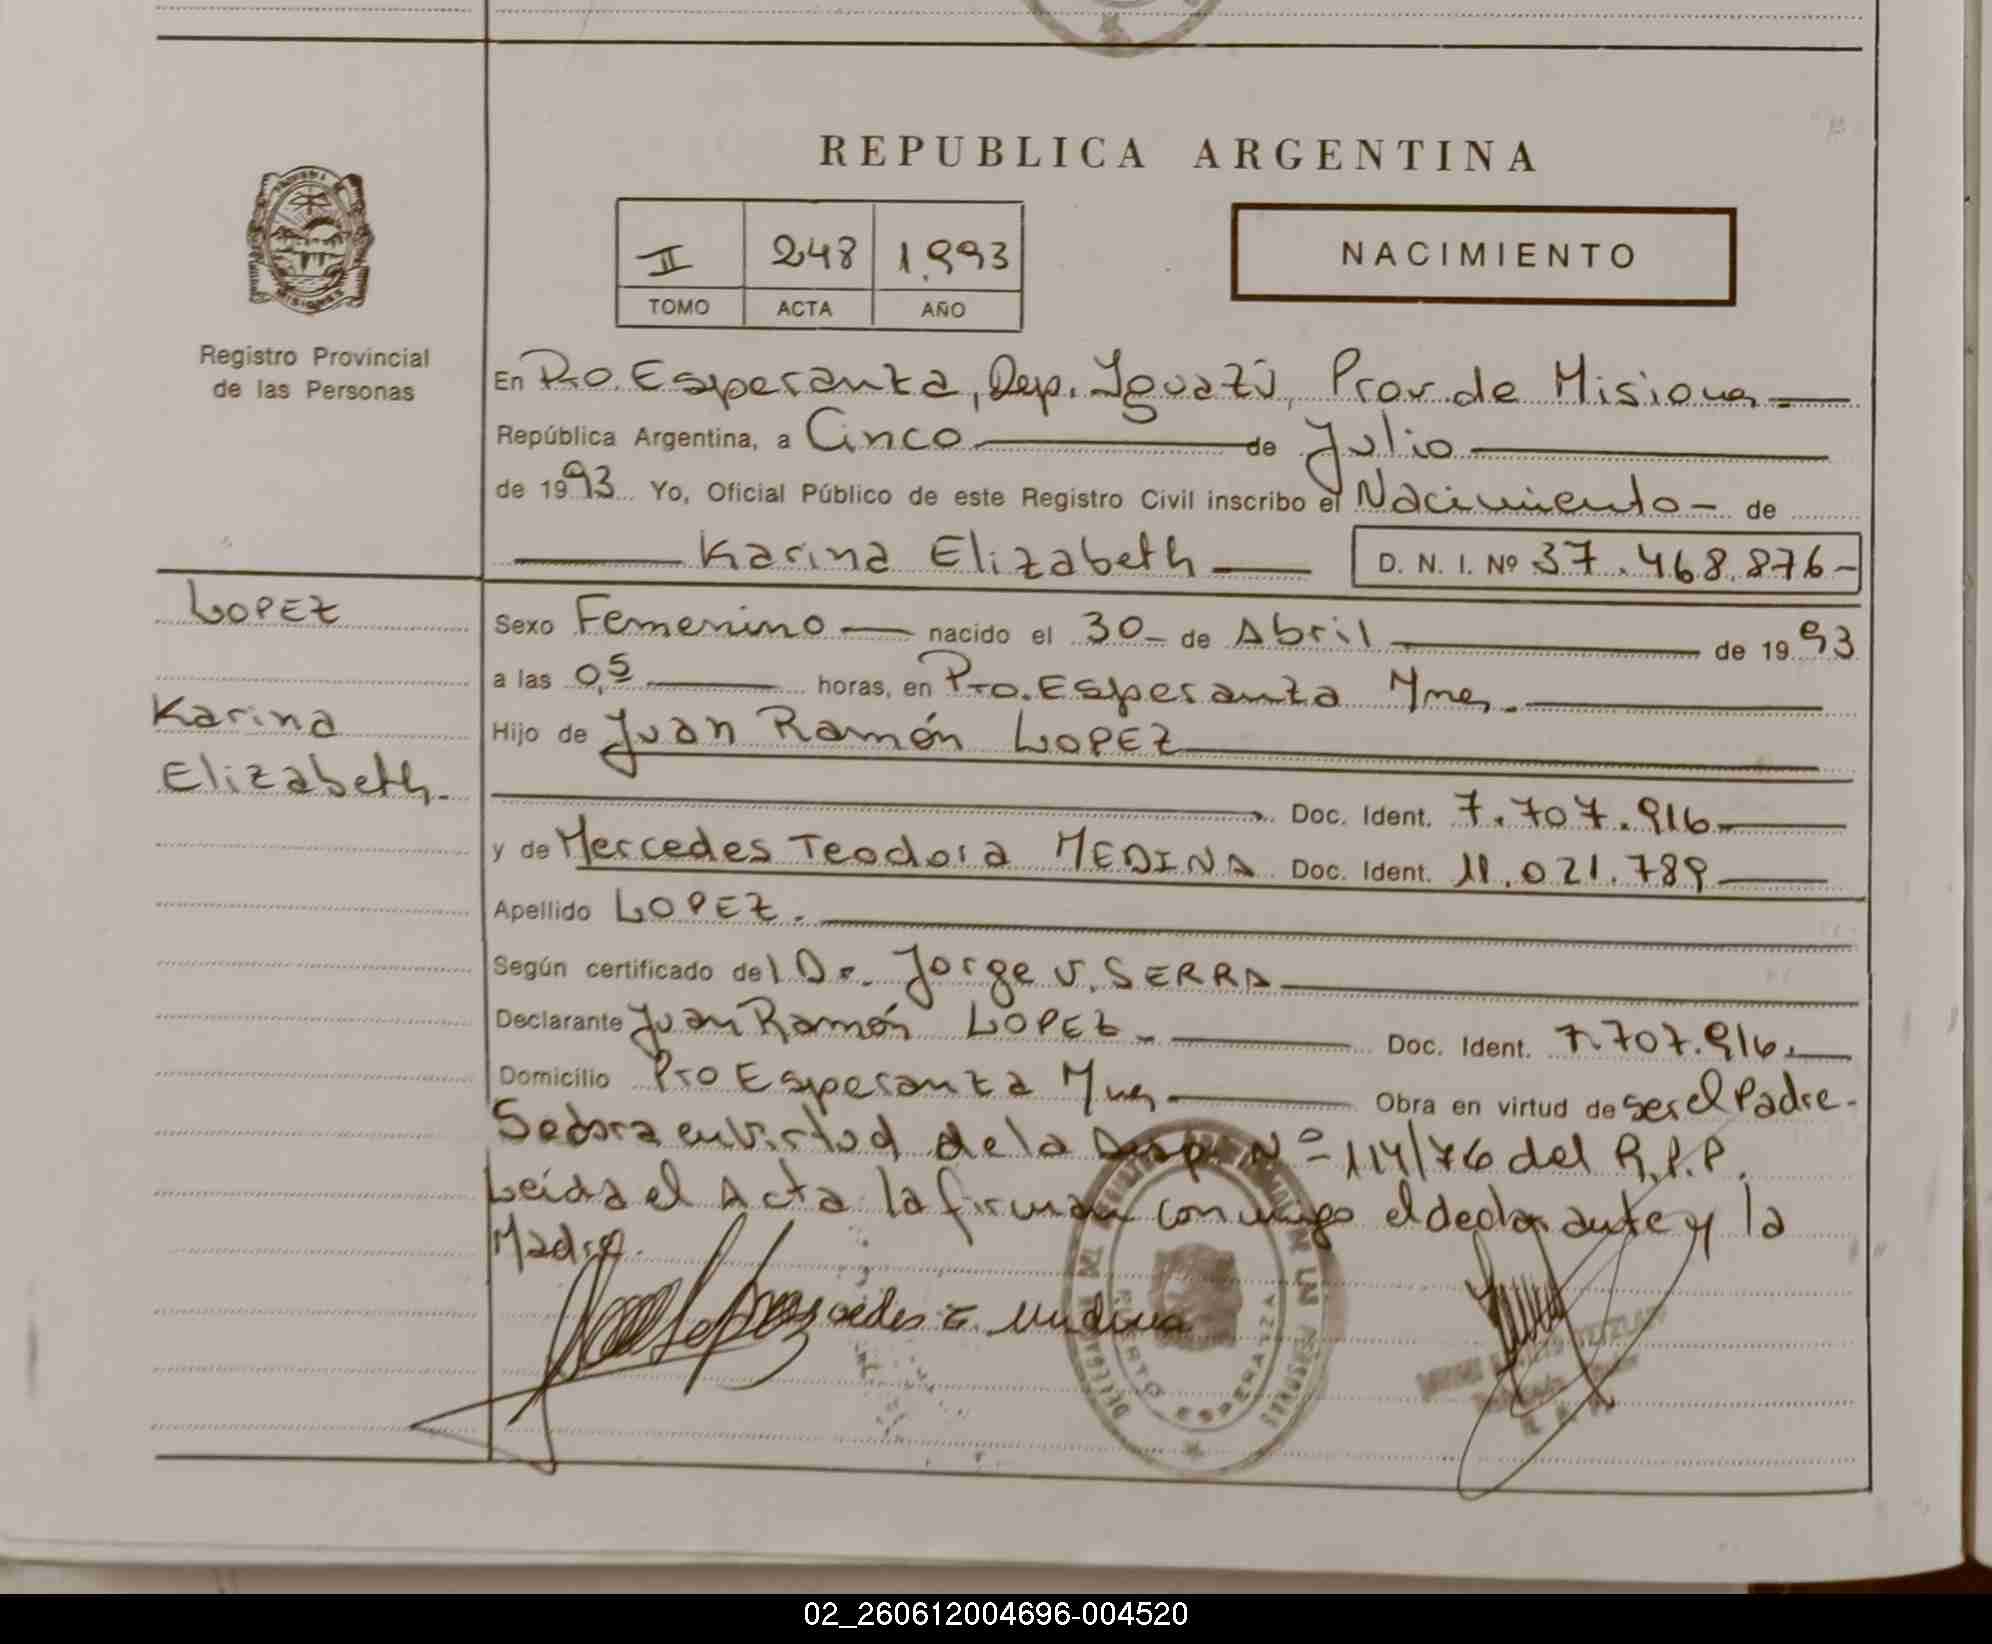 REPUBLICA ARGENTINA
II 248 1.993
TOMO ACTA AÑO
NACIMIENTO
Registro Provincial
de las Personas
En Pto. Esperanza, Dep. Iguazú, Prov. de Misiones
República Argentina, a Cinco de Julio
de 1993 Yo, Oficial Público de este Registro Civil inscribo el Nacimiento - de
Karina Elizabeth D. N. I. Nº 37.468.876-
LOPEZ
Karina
Elizabeth.
Sexo Femenino nacido el 30- de Abril de 1993
a las 0,5 horas, en Pto. Esperanza Mnes.
Hijo de Juan Ramón LOPEZ
Doc. Ident. 7.707.916
y de Mercedes Teodora MEDINA Doc. Ident. 11.021.789
Apellido LOPEZ.
Según certificado del Dr. Jorge V. SERRA
Declarante Juan Ramón LOPEZ Doc. Ident. 7.707.916.
Domicilio Pto Esperanza Mnes Obra en virtud de ser el Padre-
Se en virtud de la Disp. Nº 114/76 del R.P.P.
Leída el Acta la firman conmigo el declarante y la
Madre.
PUERTO ESPERANZA
02_260612004696-004520